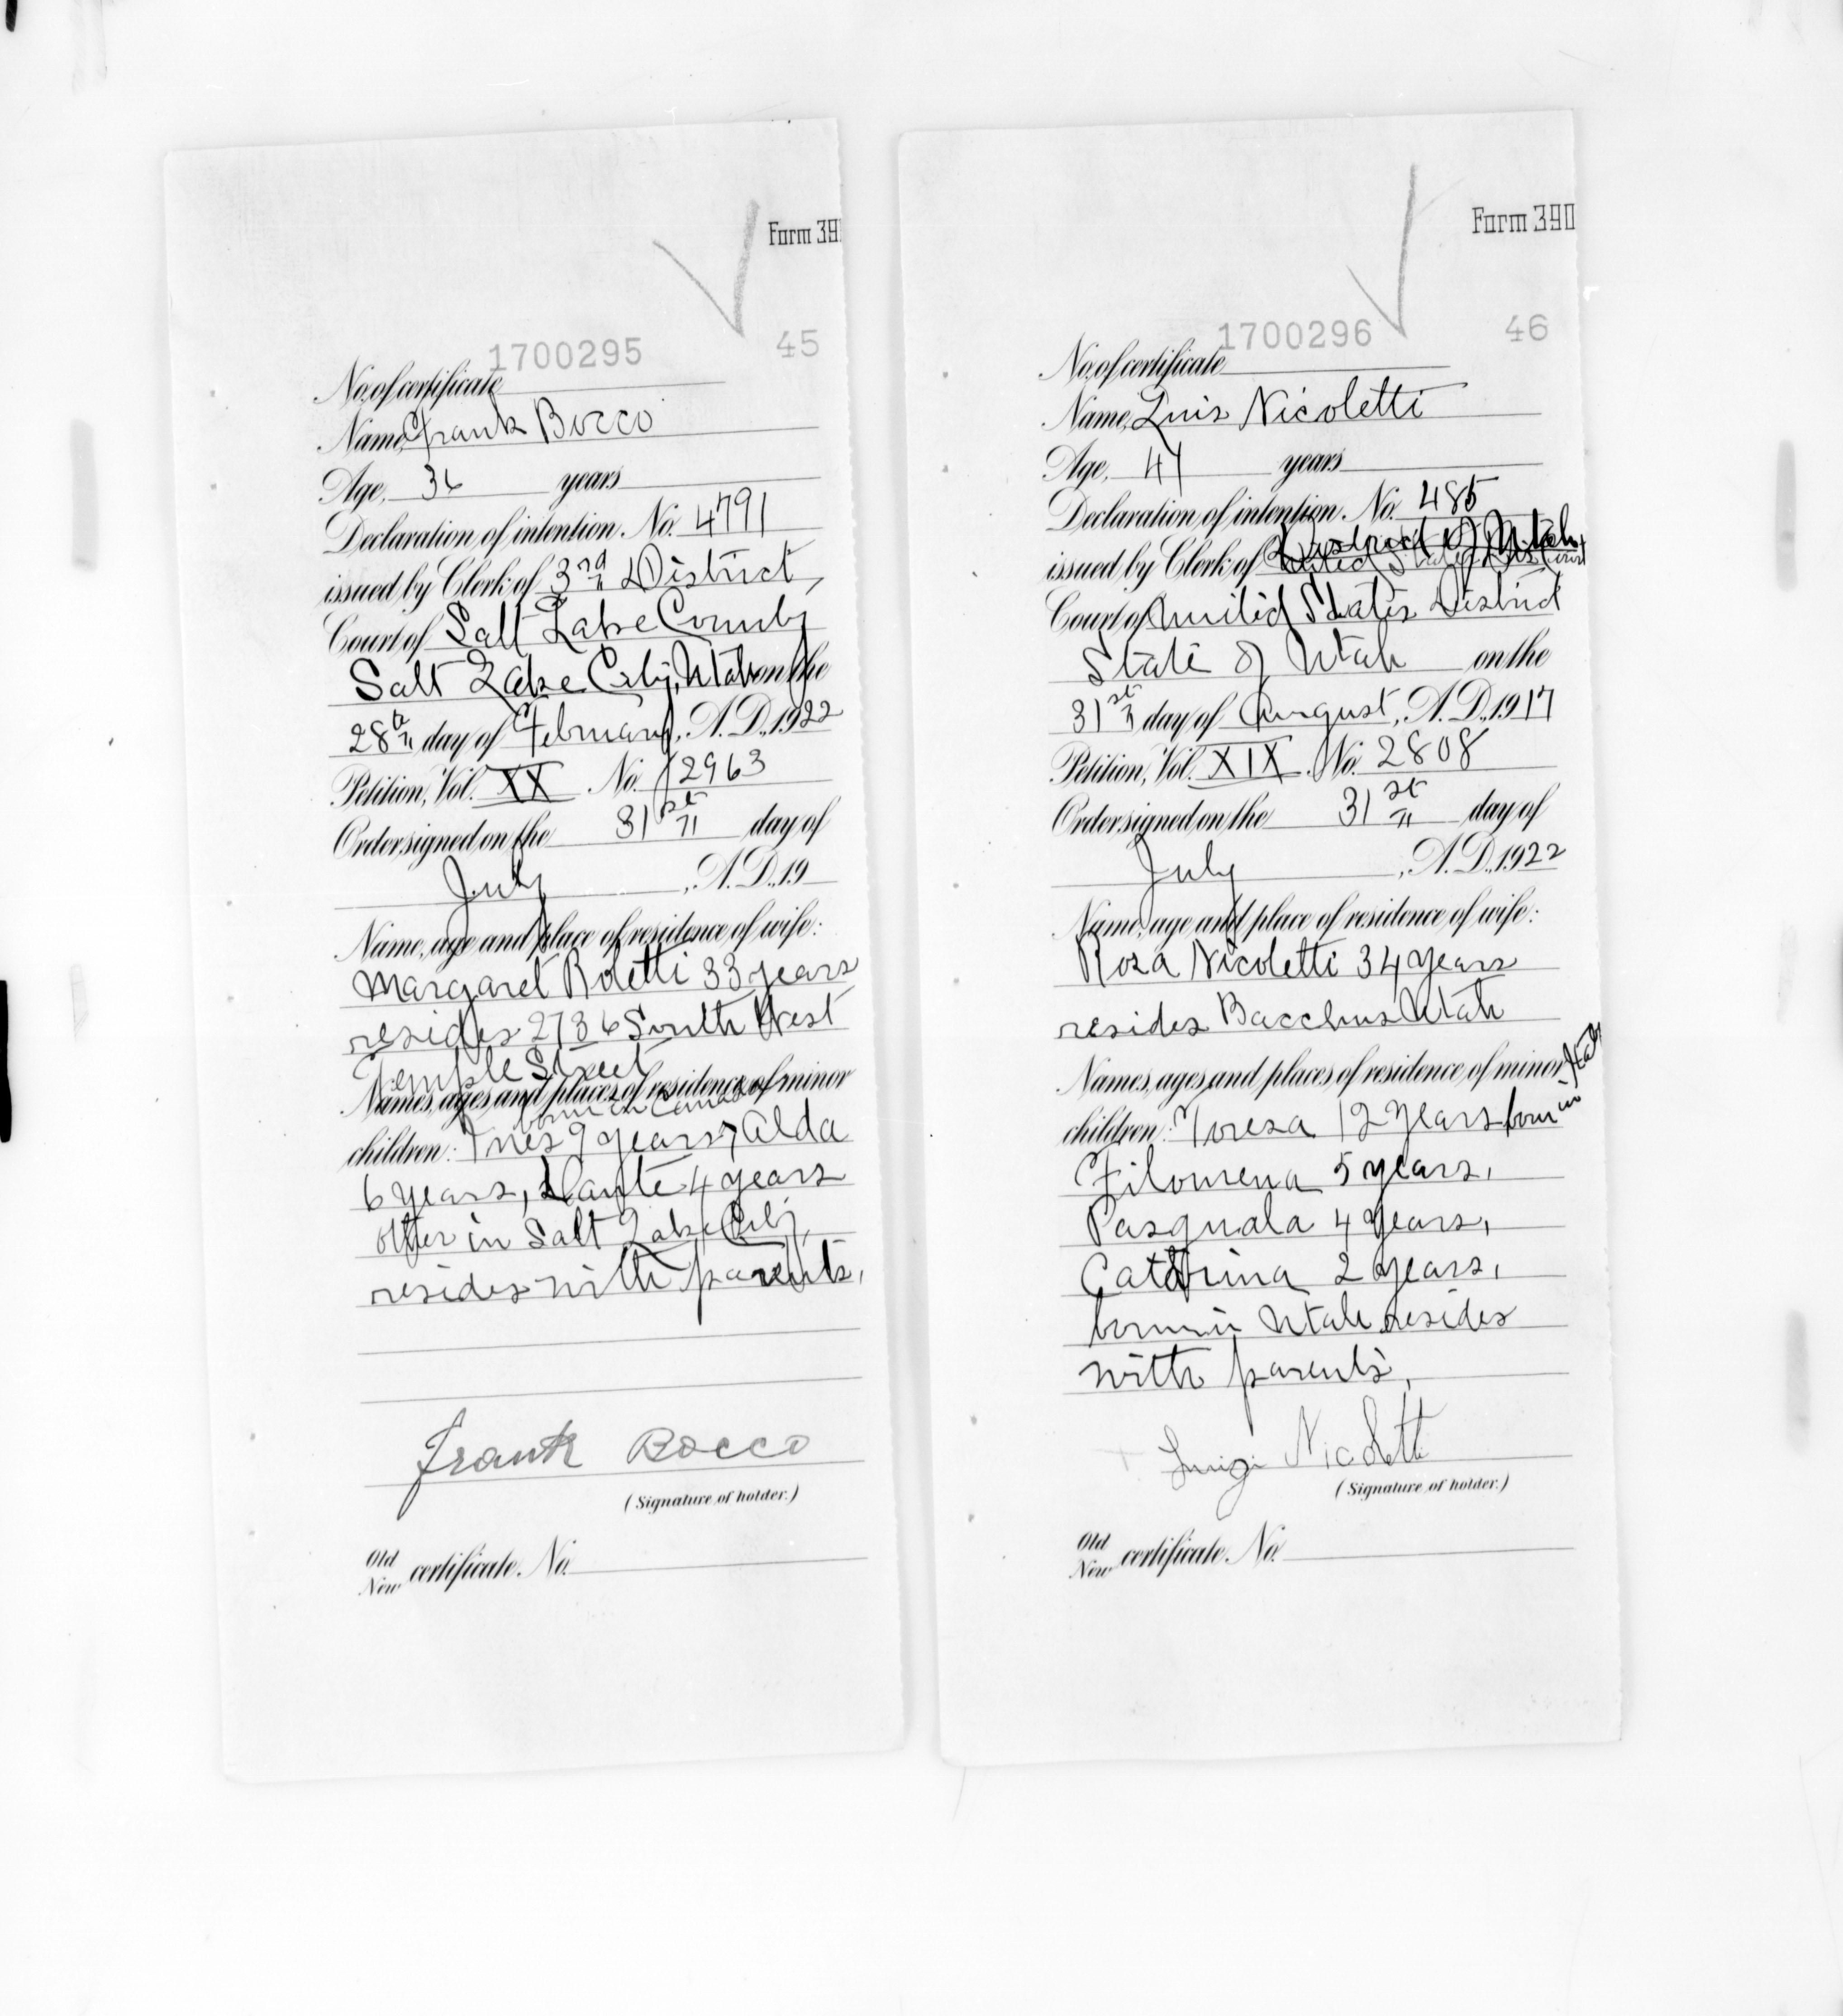 Form 39
1700295 45
No. of certificate
Name, Frank Bocco
Age, 36 years
Declaration of intention. No. 4791
issued by Clerk of 3rd District
Court of Salt Lake County
Salt Lake City, Utah on the
28th day of February, A. D., 1922
Petition, Vol. XX No. 2963
Order signed on the 31st day of
July, A. D., 19
Name, age and place of residence of wife:
Margaret Boletti 33 years
resides 2736 South West
Temple Street
Names, ages and places of residence of minor
born in Canada
children: Ines 9 years, Alda
6 years, Dante 4 years
other in Salt Lake City,
resides with parents,
Frank Bocco
(Signature of holder.)
Old
New certificate. No.
Form 390
1700296 46
No. of certificate
Name, Luis Nicoletti
Age, 41 years
Declaration of intention. No. 485
issued by Clerk of
Court of United States District
State of Utah on the
31st day of August, A. D., 1917
Petition, Vol. XIX. No. 2808
Order signed on the 31st day of
July, A. D., 1922
Name, age and place of residence of wife:
Rosa Nicoletti 34 years
resides Bacchus Utah
Names, ages and places of residence of minor
children: Toresa 12 years born in Italy
Filomena 5 years,
Pasquala 4 years,
Catarina 2 years,
born in Utah resides
with parents,
Luigi Nicoletti
(Signature of holder.)
Old
New certificate. No.